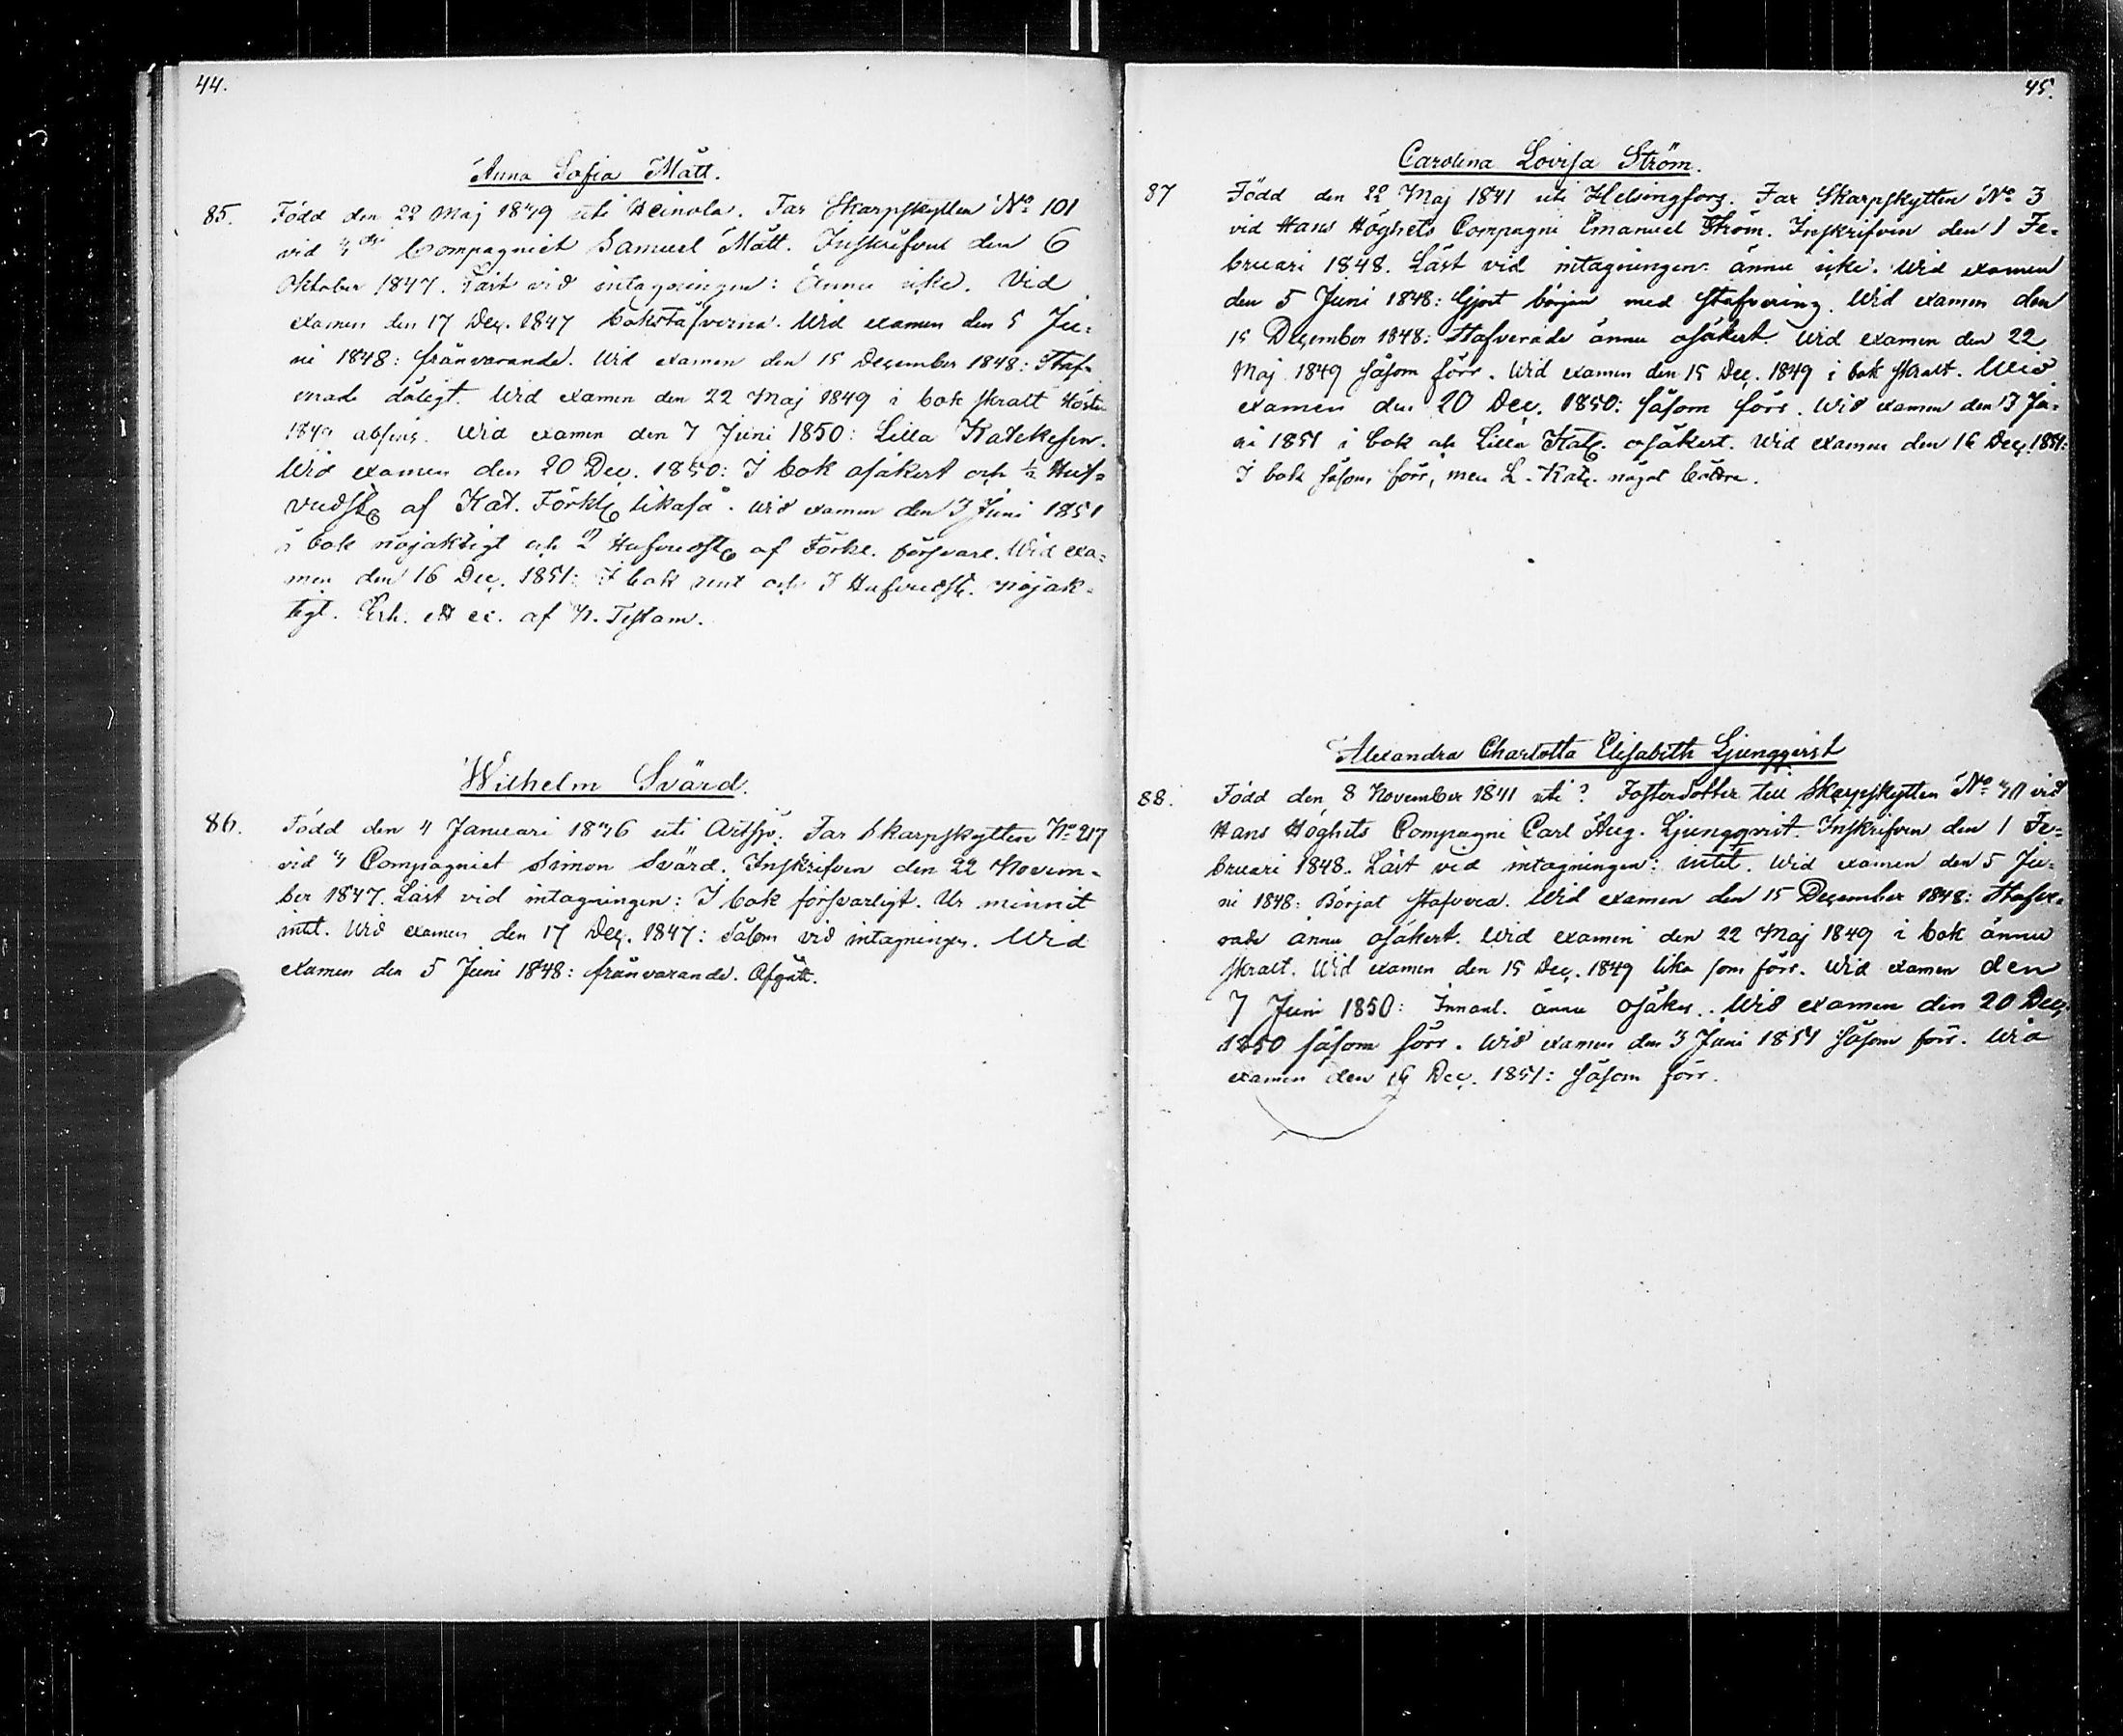 44.
Anna Sofia Mått.
85. Född den 22 Maj 1839 uti Heinola. Far Skarpskytten No 101
vid 4de Compagniet Samuel Mått. Inskrifven den 6
Oktober 1847. Läst vid intagningen: Ännu icke. Vid
examen den 17 Dec. 1847 bokstäfverna. Wid examen den 5 Ju-
ni 1848: frånvarande. Wid examen den 15 December 1848: Staf-
verade dåligt. Wid examen den 22 Maj 1849 i bok skralt Hösten
1849 absens. Wid examen den 7 Juni 1850: Lilla Katekesen.
Wid examen den 20 Dec. 1850: I bok osäkert och ½ Huf-
vudst af Kat. Förkl likaså. Wid examen den 3 Juni 1851
i bok nöjaktigt och 2 Hufvudst af Förkl. försvarl. Wid exa-
men den 16 Dec. 1851: I bok rent och 3 Hufvudst. nöjak-
tigt. Erh. ett ex. af N. Testam.
Wilhelm Svärd.
86. Född den 4 Januari 1836 uti Artsjö. Far Skarpskytten No 217
vid 4 Compagniet Simon Svärd. Inskrifven den 22 Novem-
ber 1847. Läst vid intagningen: I bok försvarligt. Ur minnet
intet. Wid examen den 17 Dec. 1847: Såsom vid intagningen. Wid
examen den 5 Juni 1848: frånvarande. Afgått.
45.
Carolina Lovisa Ström.
87 Född den 22 Maj 1841 uti Helsingfors. Far Skarpskytten No 3
vid Hans Höghets Compagni Emanuel Ström. Inskrifven den 1 Fe-
bruari 1848. Läst vid intagningen: ännu icke. Wid examen
den 5 Juni 1848: Gjort början med Stafvering. Wid examen den
15 December 1848: Stafverade ännu osäkert. Wid examen den 22
Maj 1849 såsom förr. Wid examen den 15 Dec. 1849 i bok skralt. Wid
examen den 20 Dec. 1850: såsom förr. Wid examen den 3 Ju-
ni 1851 i bok och Lilla Katec. osäkert. Wid examen den 16 Dec. 1851:
I bok såsom förr, men L. Katec. något bättre.
Alexandra Charlotta Elisabeth Ljungqvist
88. Född den 8 November 1841 uti? Fosterdotter till Skarpskytten No vid
Hans Höghets Compagni Carl Aug. Ljungqvist. Inskrifven den 1 Fe-
bruari 1848. Läst vid intagningen: intet. Wid examen den 5 Ju-
ni 1848: Börjat stafvera. Wid examen den 15 December 1848: Stafve-
rade ännu osäkert. Wid examen den 22 Maj 1849 i bok ännu
skralt. Wid examen den 15 Dec. 1849 lika som förr. Wid examen den
7 Juni 1850: Innanl. ännu osäker. Wid examen den 20 Dec.
1850 såsom förr. Wid examen den 3 Juni 1851 såsom förr. Wid
examen den 16 Dec. 1851: såsom förr.